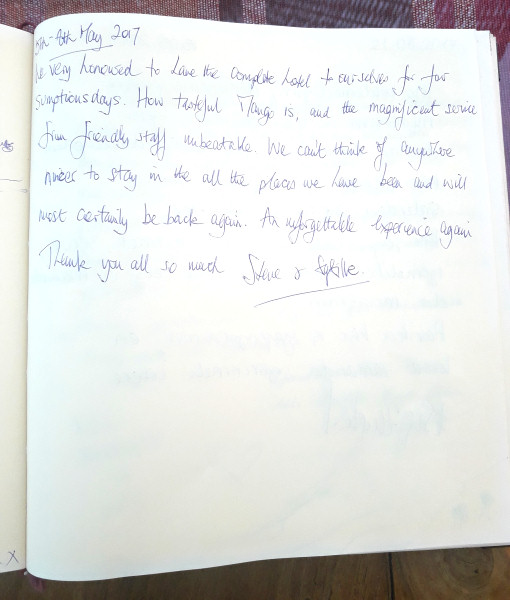 May 2017
very honoured to have the complete hotel to ourselves for four
sumptious days. How tasteful Mango is, and the magnificent service
from friendly staff unbeatable. We can't think of anywhere
nicer to stay in the all the places we have been and will
most certainly be back again. An unforgettable experience again
Thank you all so much Steve &